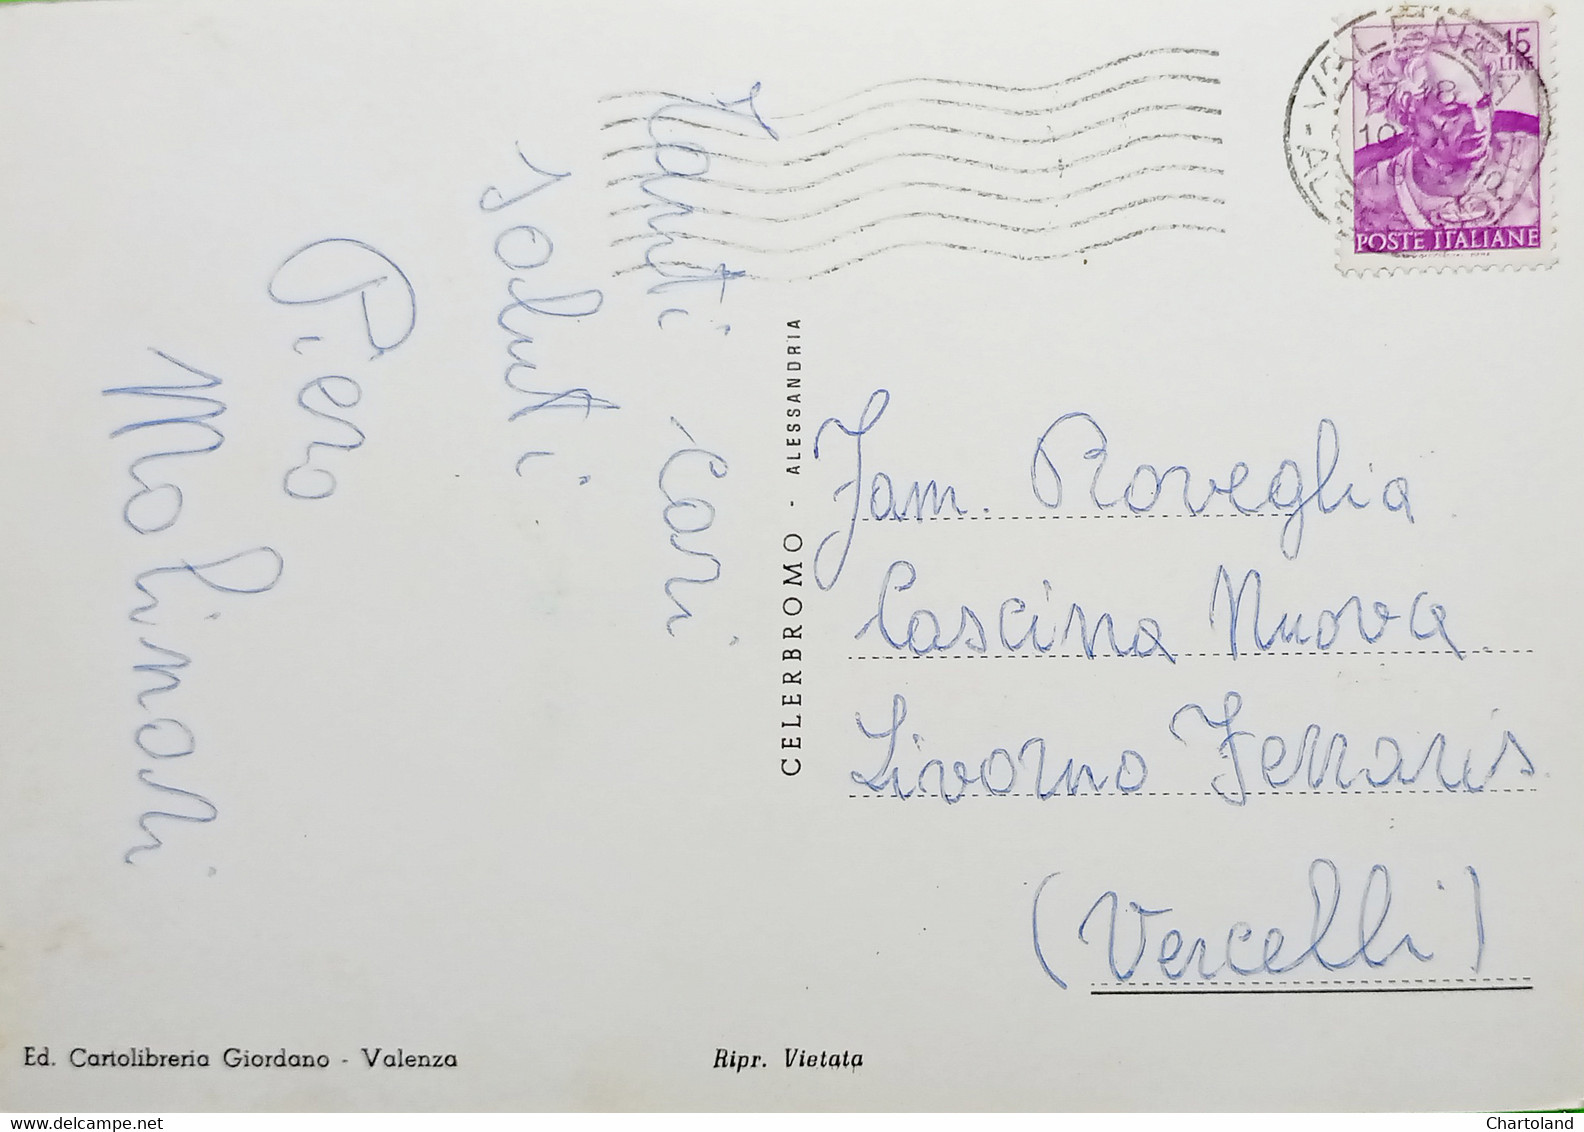 Tanti cari
saluti
Piero
Molinari
CELERBROMO - ALESSANDRIA
15
LIRE
VALENZA
17-18
19
POSTE ITALIANE
Fam. Roveglia
Cascina Nuova
Livorno Ferraris
(Vercelli)
Ed. Cartolibreria Giordano - Valenza
Ripr. Vietata
Chartoland